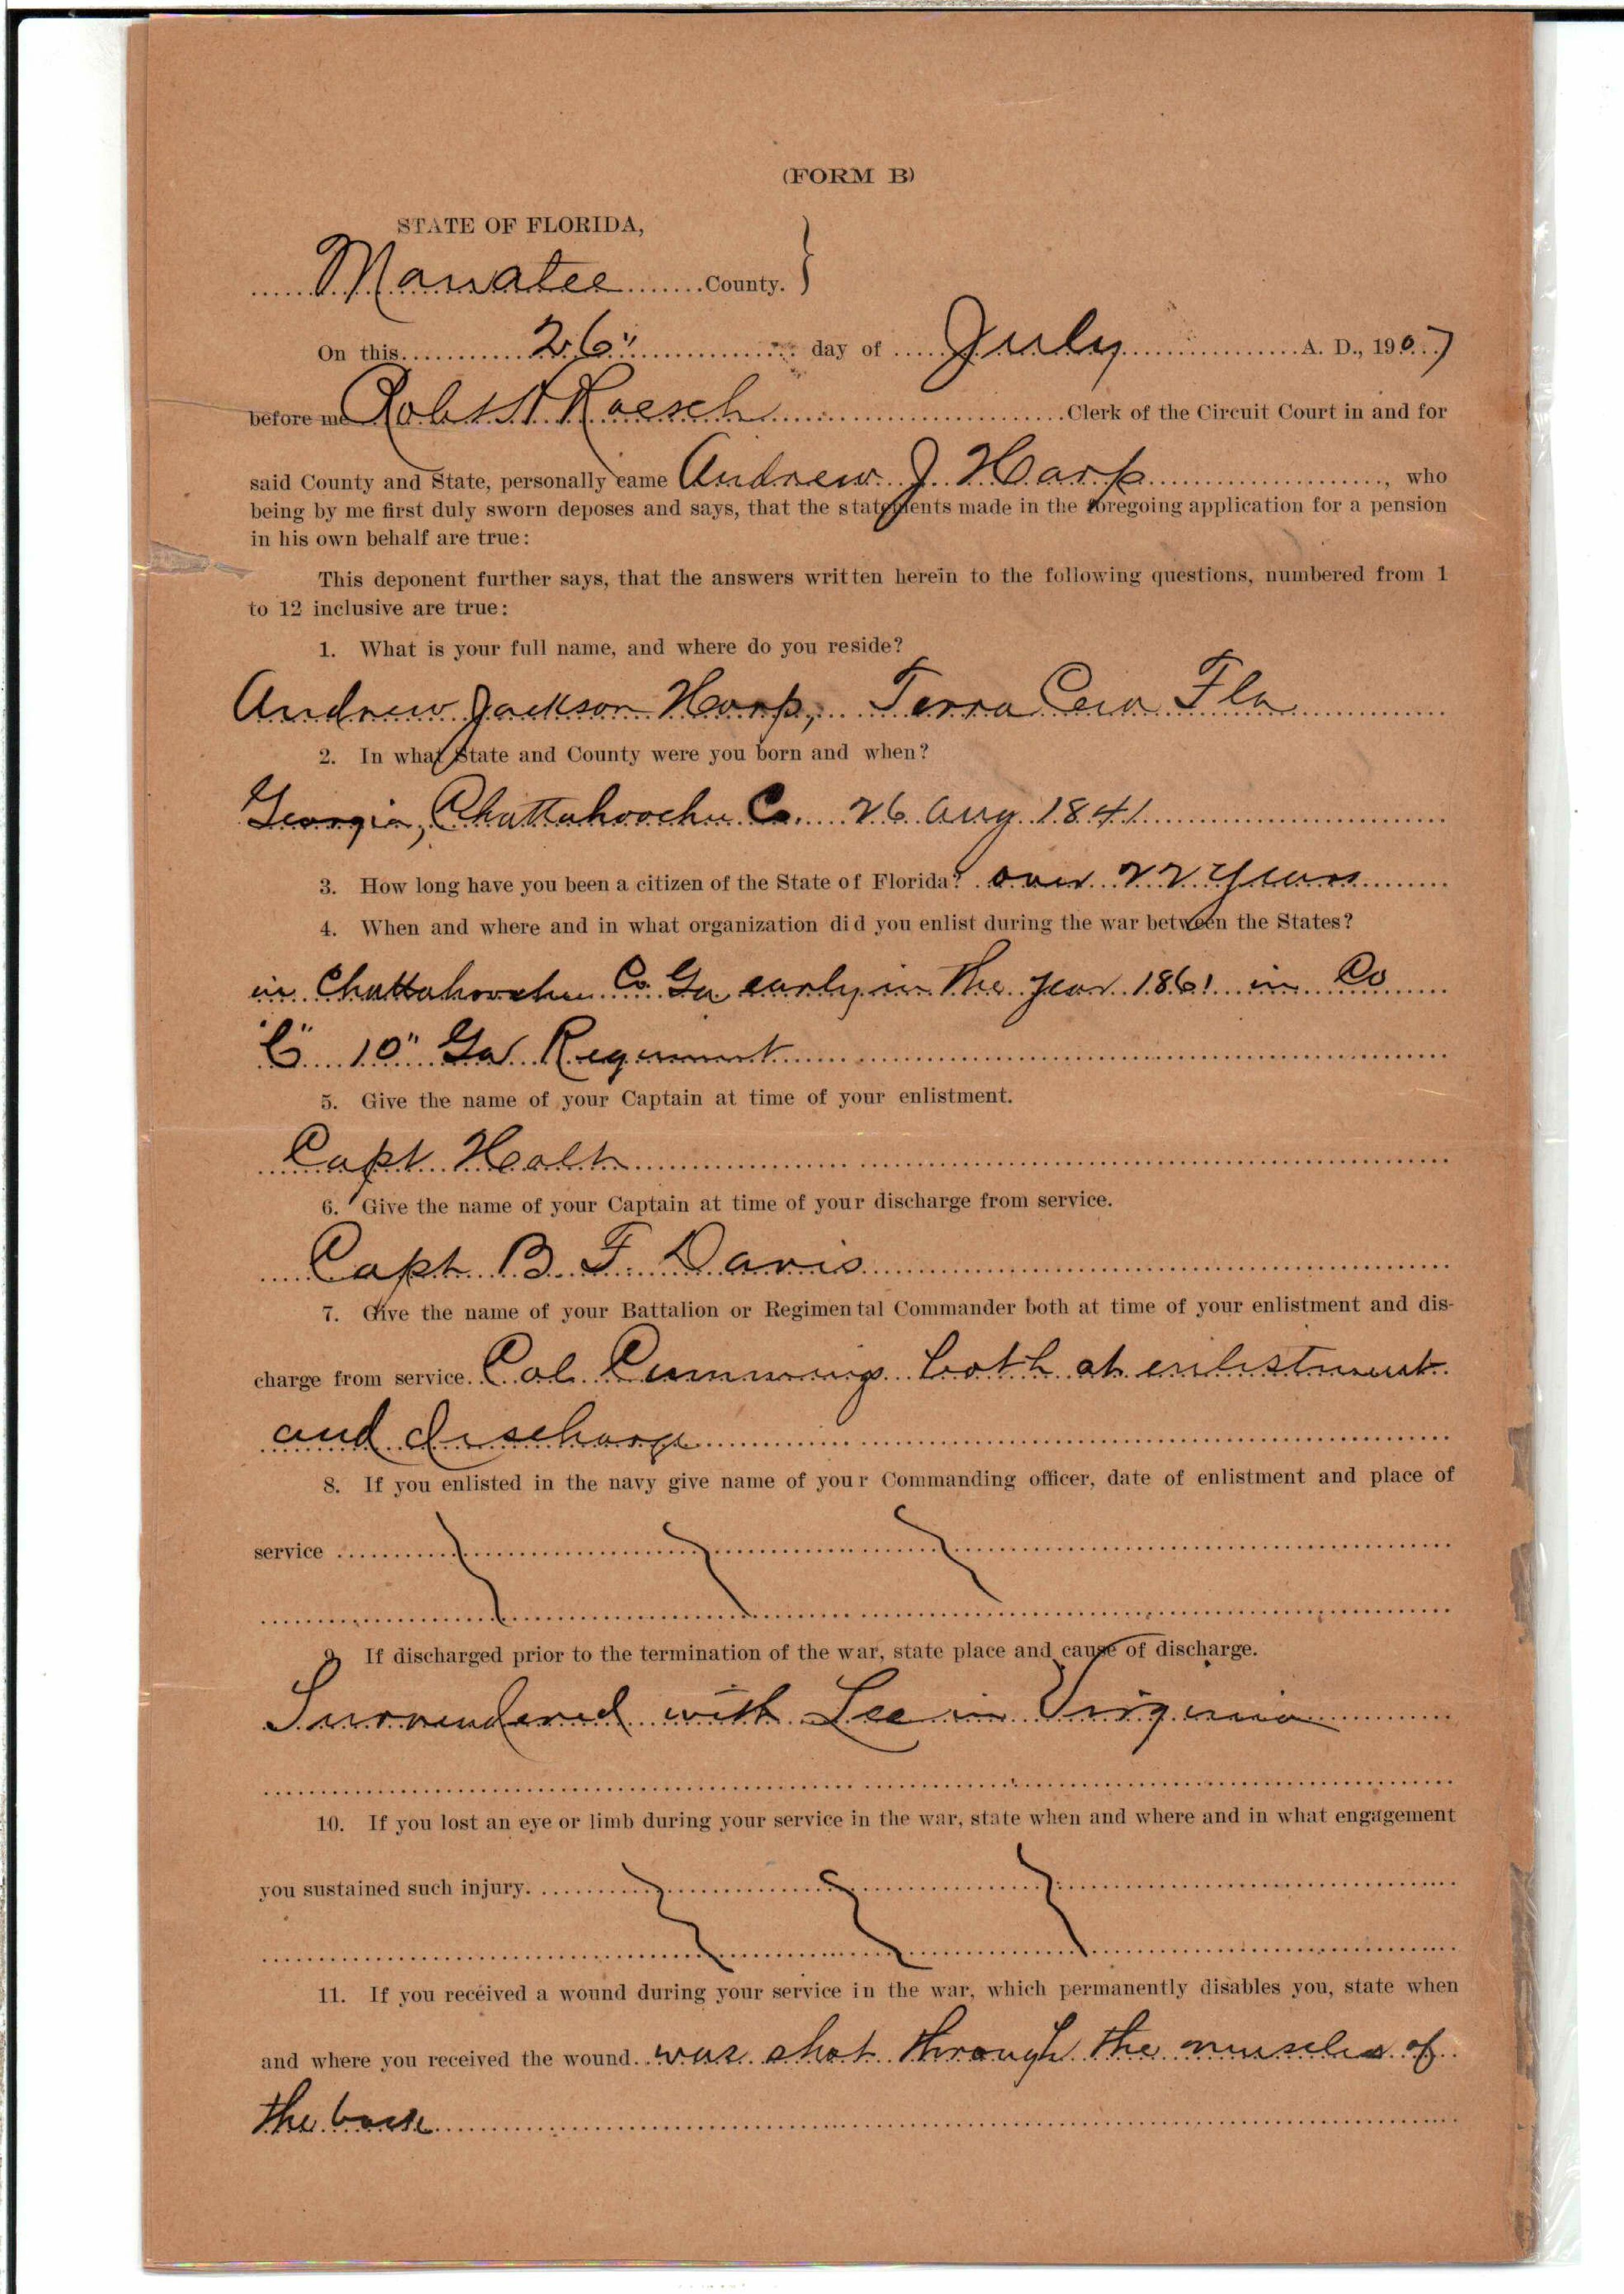 (FORM B)
STATE OF FLORIDA,
Manatee County. }
On this 26" day of July A. D., 1907
before me Robt H Roesch Clerk of the Circuit Court in and for
said County and State, personally came Andrew J. Harp, who
being by me first duly sworn deposes and says, that the statements made in the foregoing application for a pension
in his own behalf are true:
This deponent further says, that the answers written herein to the following questions, numbered from 1
to 12 inclusive are true:
1. What is your full name, and where do you reside?
Andrew Jackson Harp, Terra Ceia Fla
2. In what State and County were you born and when?
Georgia, Chattahoochee Co. 26 Aug 1841
3. How long have you been a citizen of the State of Florida? over 22 years
4. When and where and in what organization did you enlist during the war between the States?
in Chattahoochee Co. Ga early in the year 1861 in Co
"C" 10" Ga Regiment
5. Give the name of your Captain at time of your enlistment.
Capt
6. Give the name of your Captain at time of your discharge from service.
Capt. B. F. Davis
7. Give the name of your Battalion or Regimental Commander both at time of your enlistment and dis-
charge from service. Col. Cummings both at enlistment
and discharge
8. If you enlisted in the navy give name of your Commanding officer, date of enlistment and place of
service
9. If discharged prior to the termination of the war, state place and cause of discharge.
Surrendered with Lee in Virginia
10. If you lost an eye or limb during your service in the war, state when and where and in what engagement
you sustained such injury.
11. If you received a wound during your service in the war, which permanently disables you, state when
and where you received the wound. was shot through the muscles of
the back